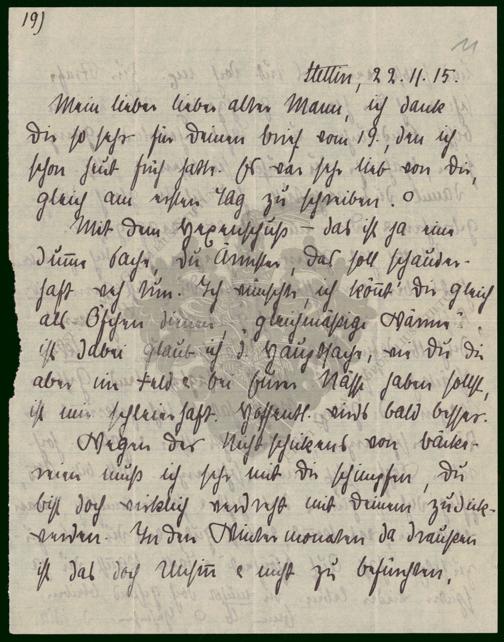 19)
11
Stettin, 22.11.15.
Mein lieber lieber alter Mann, ich dank
Dir so sehr für Deinen Brief vom 19., den ich
schon heut früh hatte. Es war sehr lieb von Dir,
gleich am ersten Tag zu schreiben.
Mit dem Hexenschuß – das ist ja eine
dumme Sache, Du Ärmster, das soll schauder-
haft weh tun. Ich wünschte, ich könnt' Dir gleich
als Öfchen dienen, „gleichmäßige Wärme",
ist dabei glaub ich d. Hauptsache, wie Du die
aber im Felde bei Eurer Nässe haben sollst,
ist mir schleierhaft. Hoffentl. wirds bald besser.
Wegen des Nichtschickens von Bäcke-
reien muß ich sehr mit Dir schimpfen, Du
bist doch wirklich verdreht mit Deinem zu dick-
werden. In den Wintermonaten da draußen
ist das doch Unsinn e nicht zu befürchten.